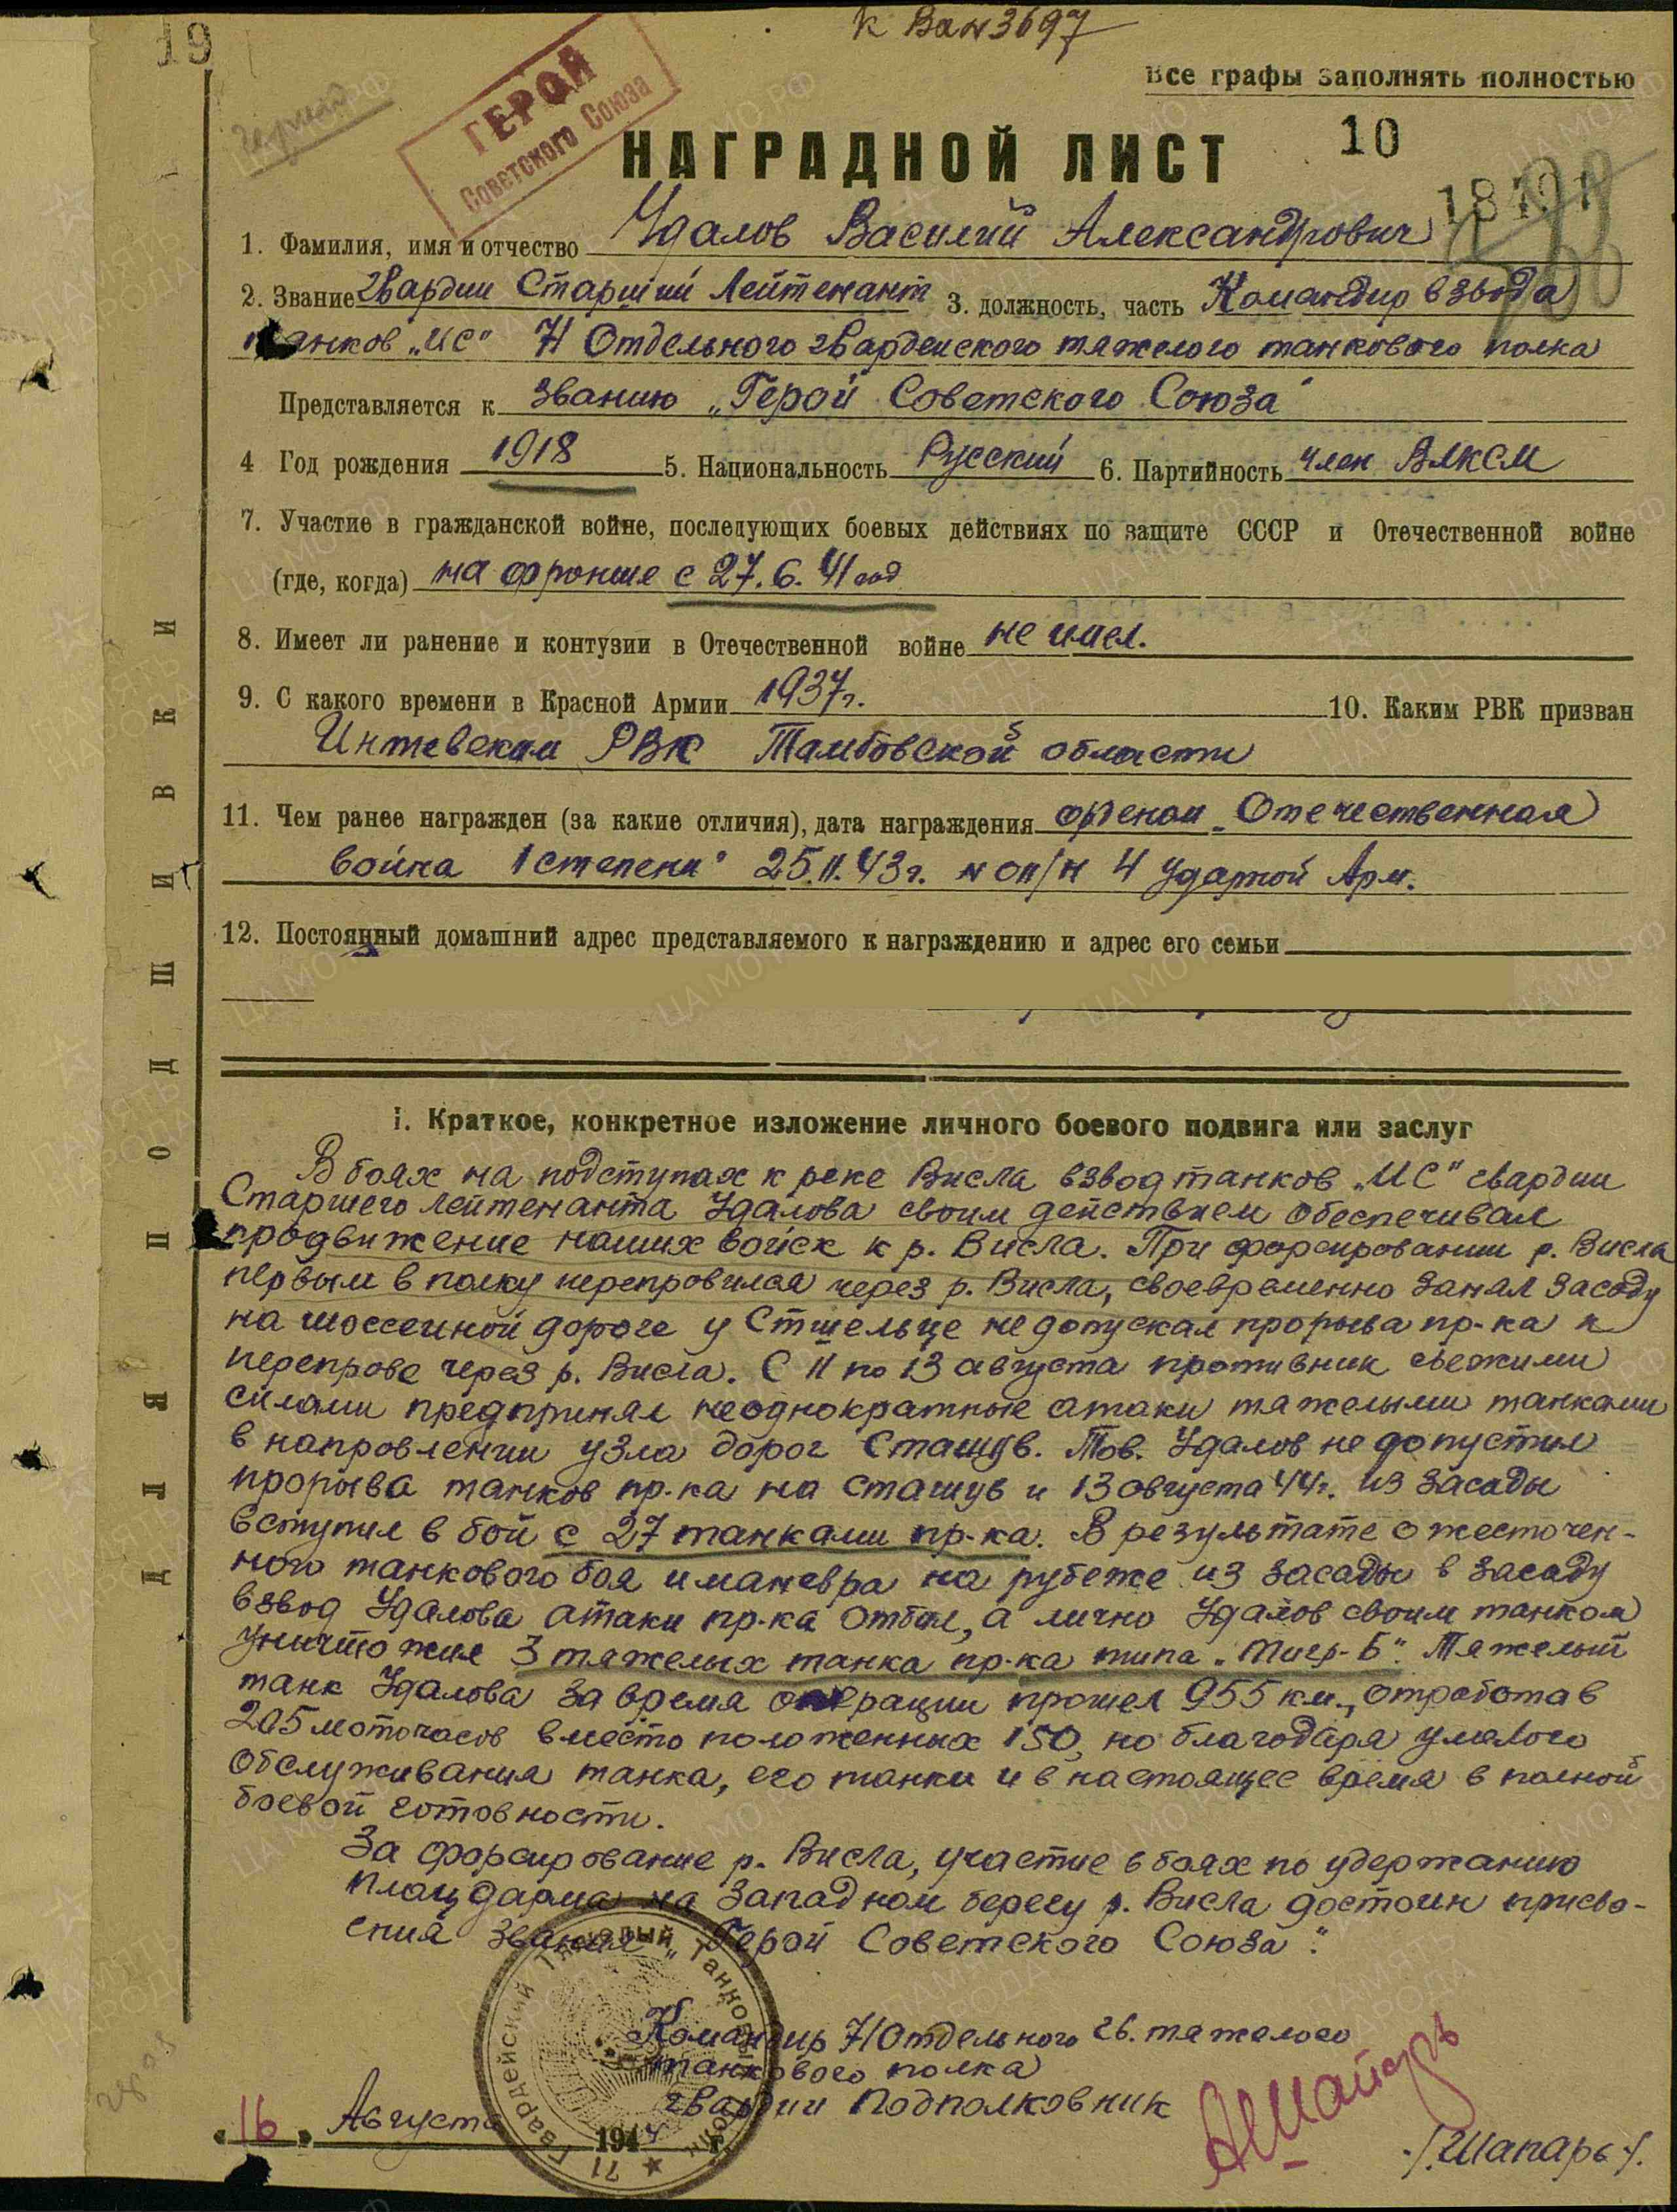 19
К Вх №3697
Все графы заполнять полностью
ГЕРОЙ
Советского Союза
НАГРАДНОЙ ЛИСТ
10
1. Фамилия, имя и отчество Удалов Василий Александрович
2. Звание гвардии Старший Лейтенант 3. должность, часть Командир взвода
танков „ИС" 71 Отдельного гвардейского тяжелого танкового полка
Представляется к званию „Герой Советского Союза"
4 Год рождения 1918 5. Национальность Русский 6. Партийность член ВЛКСМ
7. Участие в гражданской войне, последующих боевых действиях по защите СССР и Отечественной войне
(где, когда) на фронте с 27.6.41 год
8. Имеет ли ранение и контузии в Отечественной войне не имел.
9. С какого времени в Красной Армии 1937г. 10. Каким РВК призван
РВК Тамбовской области
11. Чем ранее награжден (за какие отличия), дата награждения орденом „Отечественная
война 1 степени" 25.11.43г. 4 Ударной Арм.
12. Постоянный домашний адрес представляемого к награждению и адрес его семьи
ДЛЯ ПОДШИВКИ
I. Краткое, конкретное изложение личного боевого подвига или заслуг
В боях на подступах к реке Висла взвод танков „ИС" гвардии
Старшего лейтенанта Удалова своим действием обеспечивал
продвижение наших войск к р. Висла. При форсировании р. Висла
первым в полку перепровился через р. Висла, своевременно занял засаду
на шоссейной дороге у Стшельце не допускал прорыва пр-ка к
перепрове через р. Висла. С 11 по 13 августа противник свежими
силами предпринял неоднократные атаки тяжелыми танками
в напровлении узла дорог Сташув. Тов. Удалов не допустил
прорыва танков пр-ка на Сташув и 13 августа 44г. из засады
вступил в бой с 27 танками пр-ка. В результате ожесточен-
ного танкового боя и маневра на рубеже из засады в засаду
взвод Удалова атаки пр-ка отбил, а лично Удалов своим танком
уничтожил 3 тяжелых танка пр-ка типа „Тигр-Б". Тяжелый
танк Удалова за время операции прошел 955 км., отработав
205 моточасов вместо положенных 150, но благодаря умелого
обслуживания танка, его танки и в настоящее время в полной
боевой готовности.
За форсирование р. Висла, участие в боях по удержанию
плацдарма на западном берегу р. Висла достоин присво-
ения звания „Герой Советского Союза".
Командир 71 Отдельного гв. тяжелого
танкового полка
гвардии Подполковник
/Шапарь/
„16" Августа 1944 г.
71 Гвардейский Тяжелый Танковый Полк